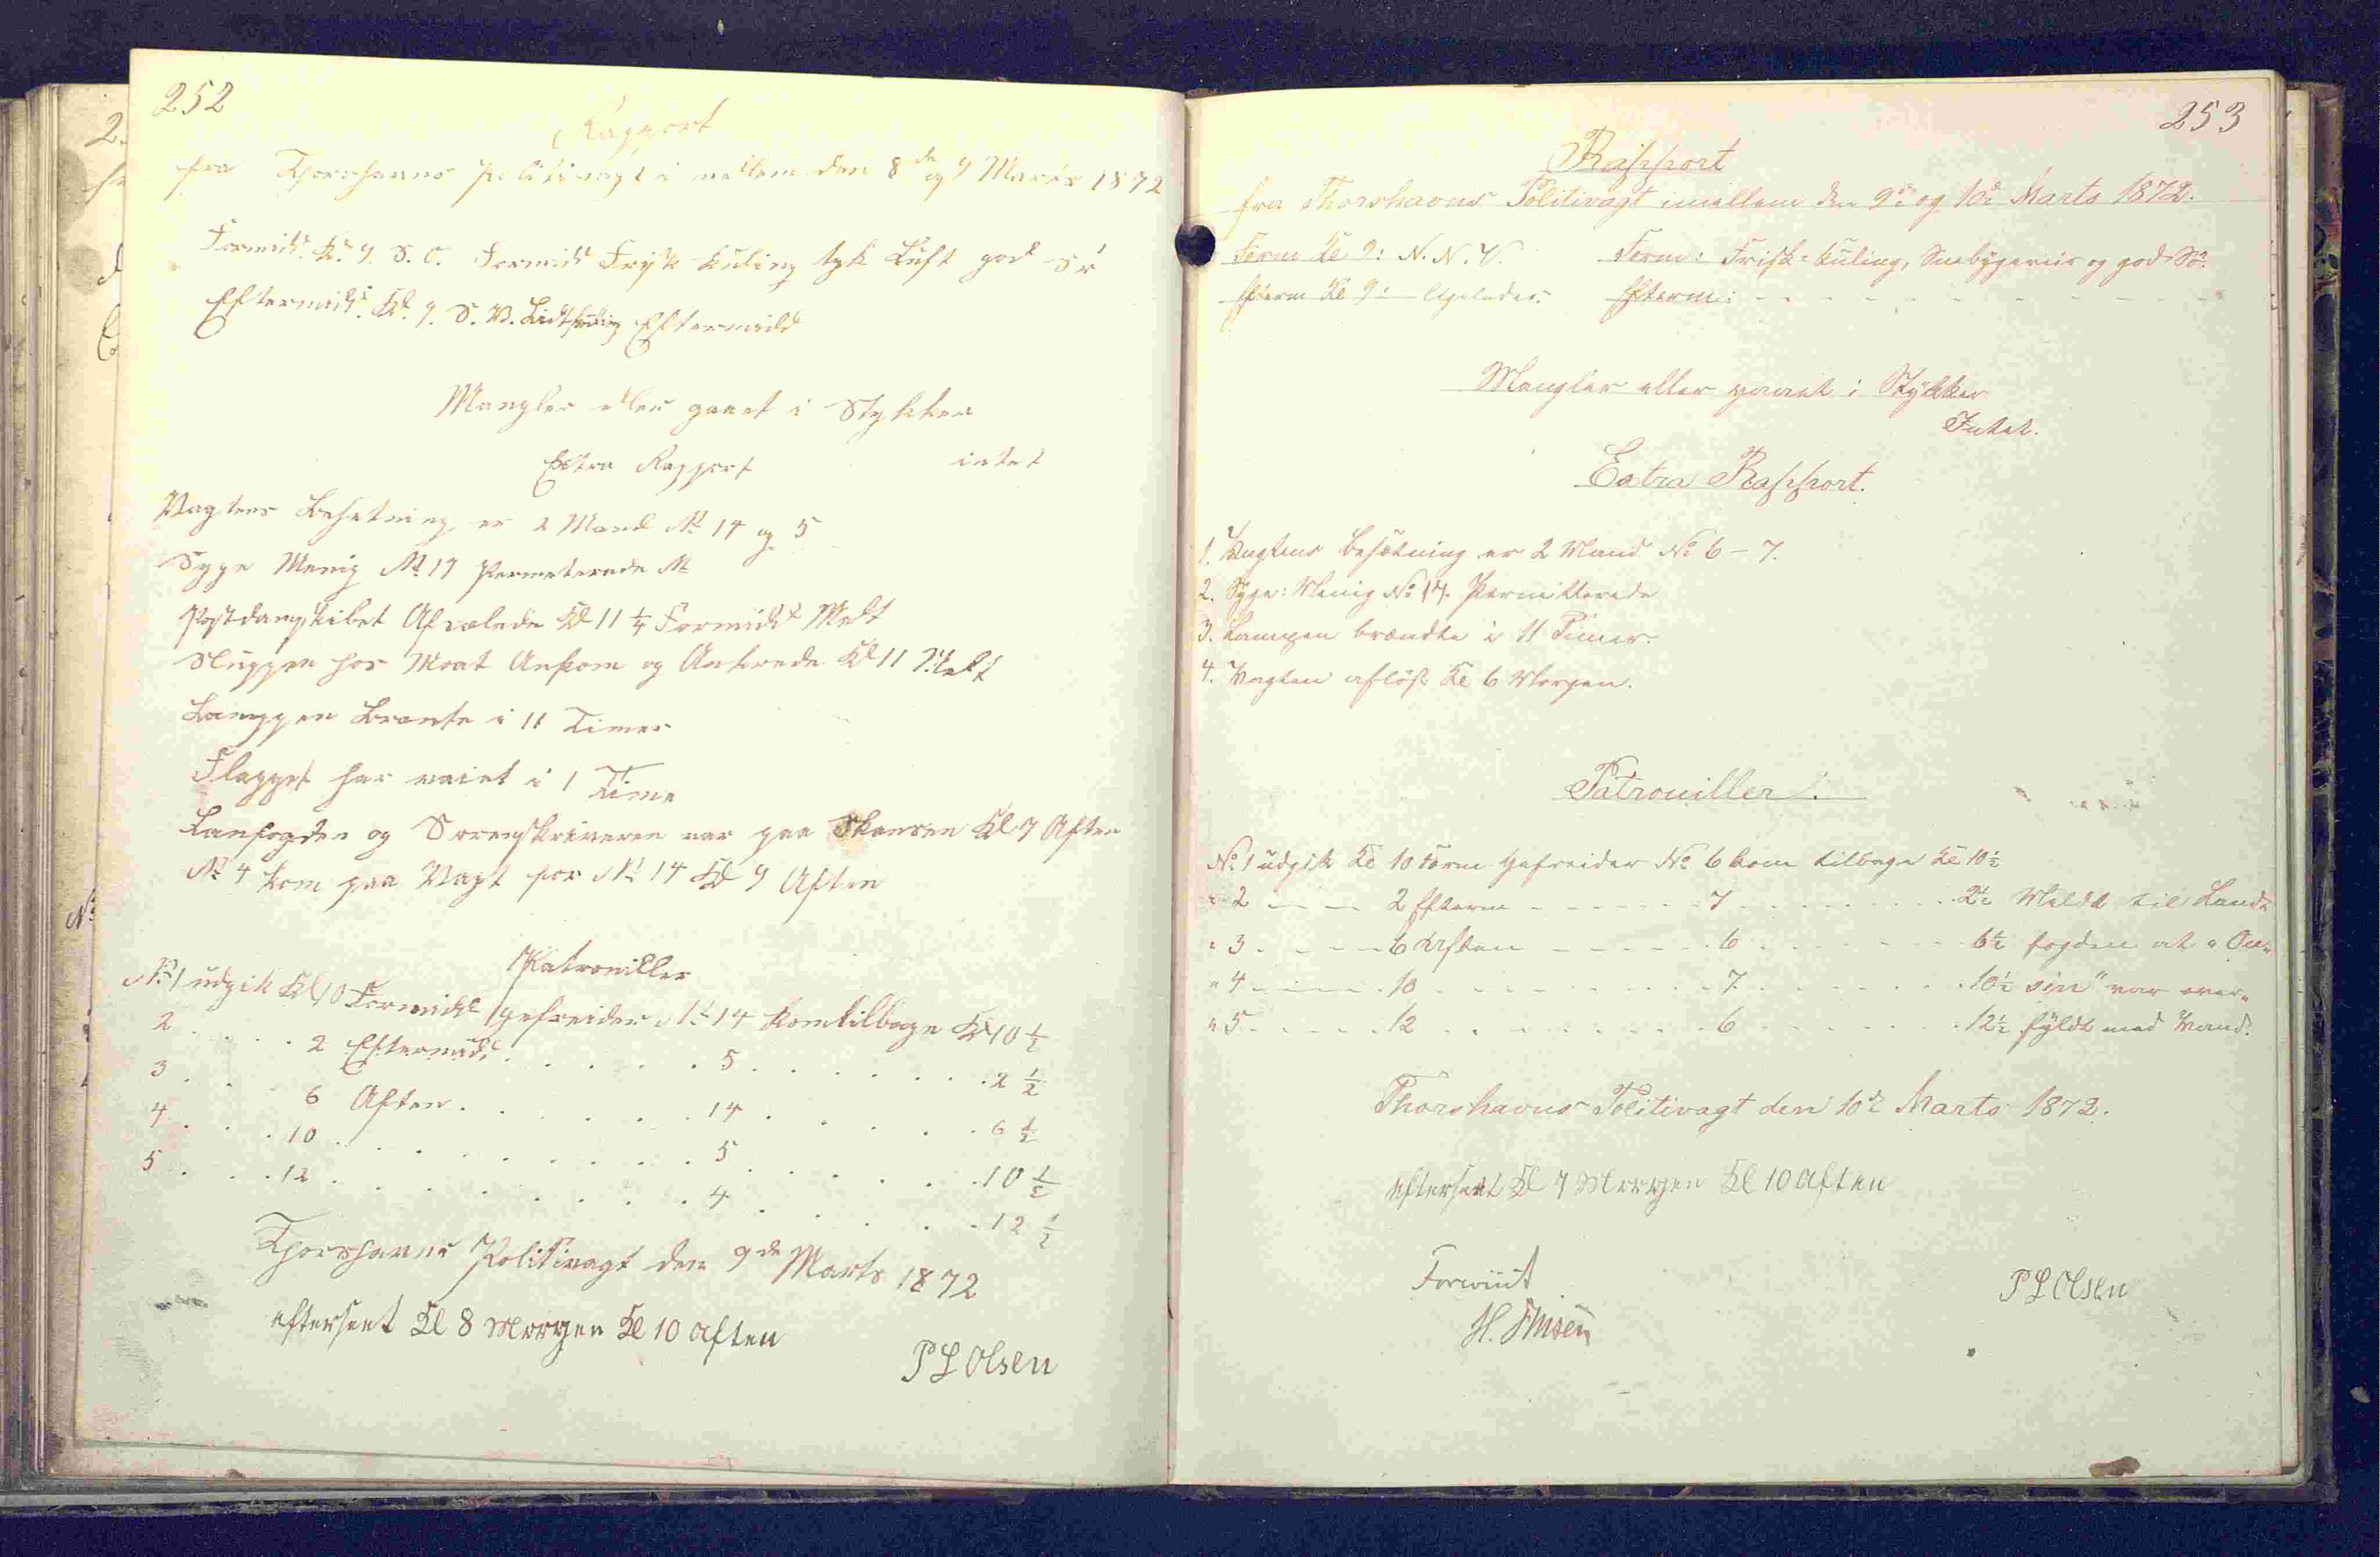 252
Rapport
fra Thorshavns Politivagt i mellem den 8de og 9 Marts 1872
Formidd. Kl. 9. S. O. Formidd Frisk Kuling tyk Luft god Sø
Eftermidd. Kl. 9. S. V. Lidt Kuling Eftermidd
Mangler eller gaaet i Stykker
intet
Extra Rapport
Vagtens Besetning er 2 Mand No 14 og 5
Syge Menig No 17 Permeterede No
Postdampskibet Afseilede Kl 11 1/4 Formidd Meldt
Sluppen hos Moat Ankom og Ankrede Kl 11
Lamppen Brænte i 11 Timer
Flagget har vaiet i 1 Time
Lanfogden og Sorenskriveren var paa Skansen Kl 7 Aften
No 4 kom paa Vagt for No 14 Kl 9 Aften
Patrouiller
No 1 udgik Kl 10 Formidd gefreider No 14 kom tilbage Kl 10 1/2
2 . . . . 2 Eftermidd . . . . . 5 . . . . . . . 2 1/2
3 . . . 6 Aften . . . . . . 14 . . . . . . 6 1/2
4 . . . 10 . . . . . . . . 5 . . . . . . 10 1/2
5 . . . 12 . . . . . . . . 4 . . . . . . 12 1/2
Thorshavns Politivagt den 9de Marts 1872
efterseet Kl 8 Morgen Kl 10 Aften
P L Olsen
253
Rapport
fra Thorshavns Politivagt imellem den 9de og 10de Marts 1872.
Form Kl 9: N. N. V. Form: Frisk-Kuling, Snebygeveir og god Sø.
Efterm Kl 9: ligeledes. Efterm: - - - - - - - - - -
Mangler eller gaaet i Stykker
Intet.
Extra Rapport.
1. Vagtens Besætning er 2 Mand No 6 - 7.
2. Syge: Menig No 17. Permitterede
3. Lampen brændte i 11 Timer.
4. Vagten afløst Kl 6 Morgen.
Patrouiller.
No 1 udgik Kl 10 Form Gefreider No 6 kom tilbage Kl 10 1/2
" 2 - - - 2 Efterm - - - - - - 7 - - - - - - 2 1/2 Meldt til Land=
" 3 - - - 6 Aften - - - - - - 6 - - - - - - 6 1/2 fogden at "Ou=
" 4 - - - 10 - - - - - - - - 7 - - - - - - 10 1/2 sin" var over=
" 5 - - - 12 - - - - - - - - 6 - - - - - - 12 1/2 fyldt med Vand.
Thorshavns Politivagt den 10de Marts 1872.
efterseet Kl 7 Morgen Kl 10 Aften
Foreviist
P L Olsen